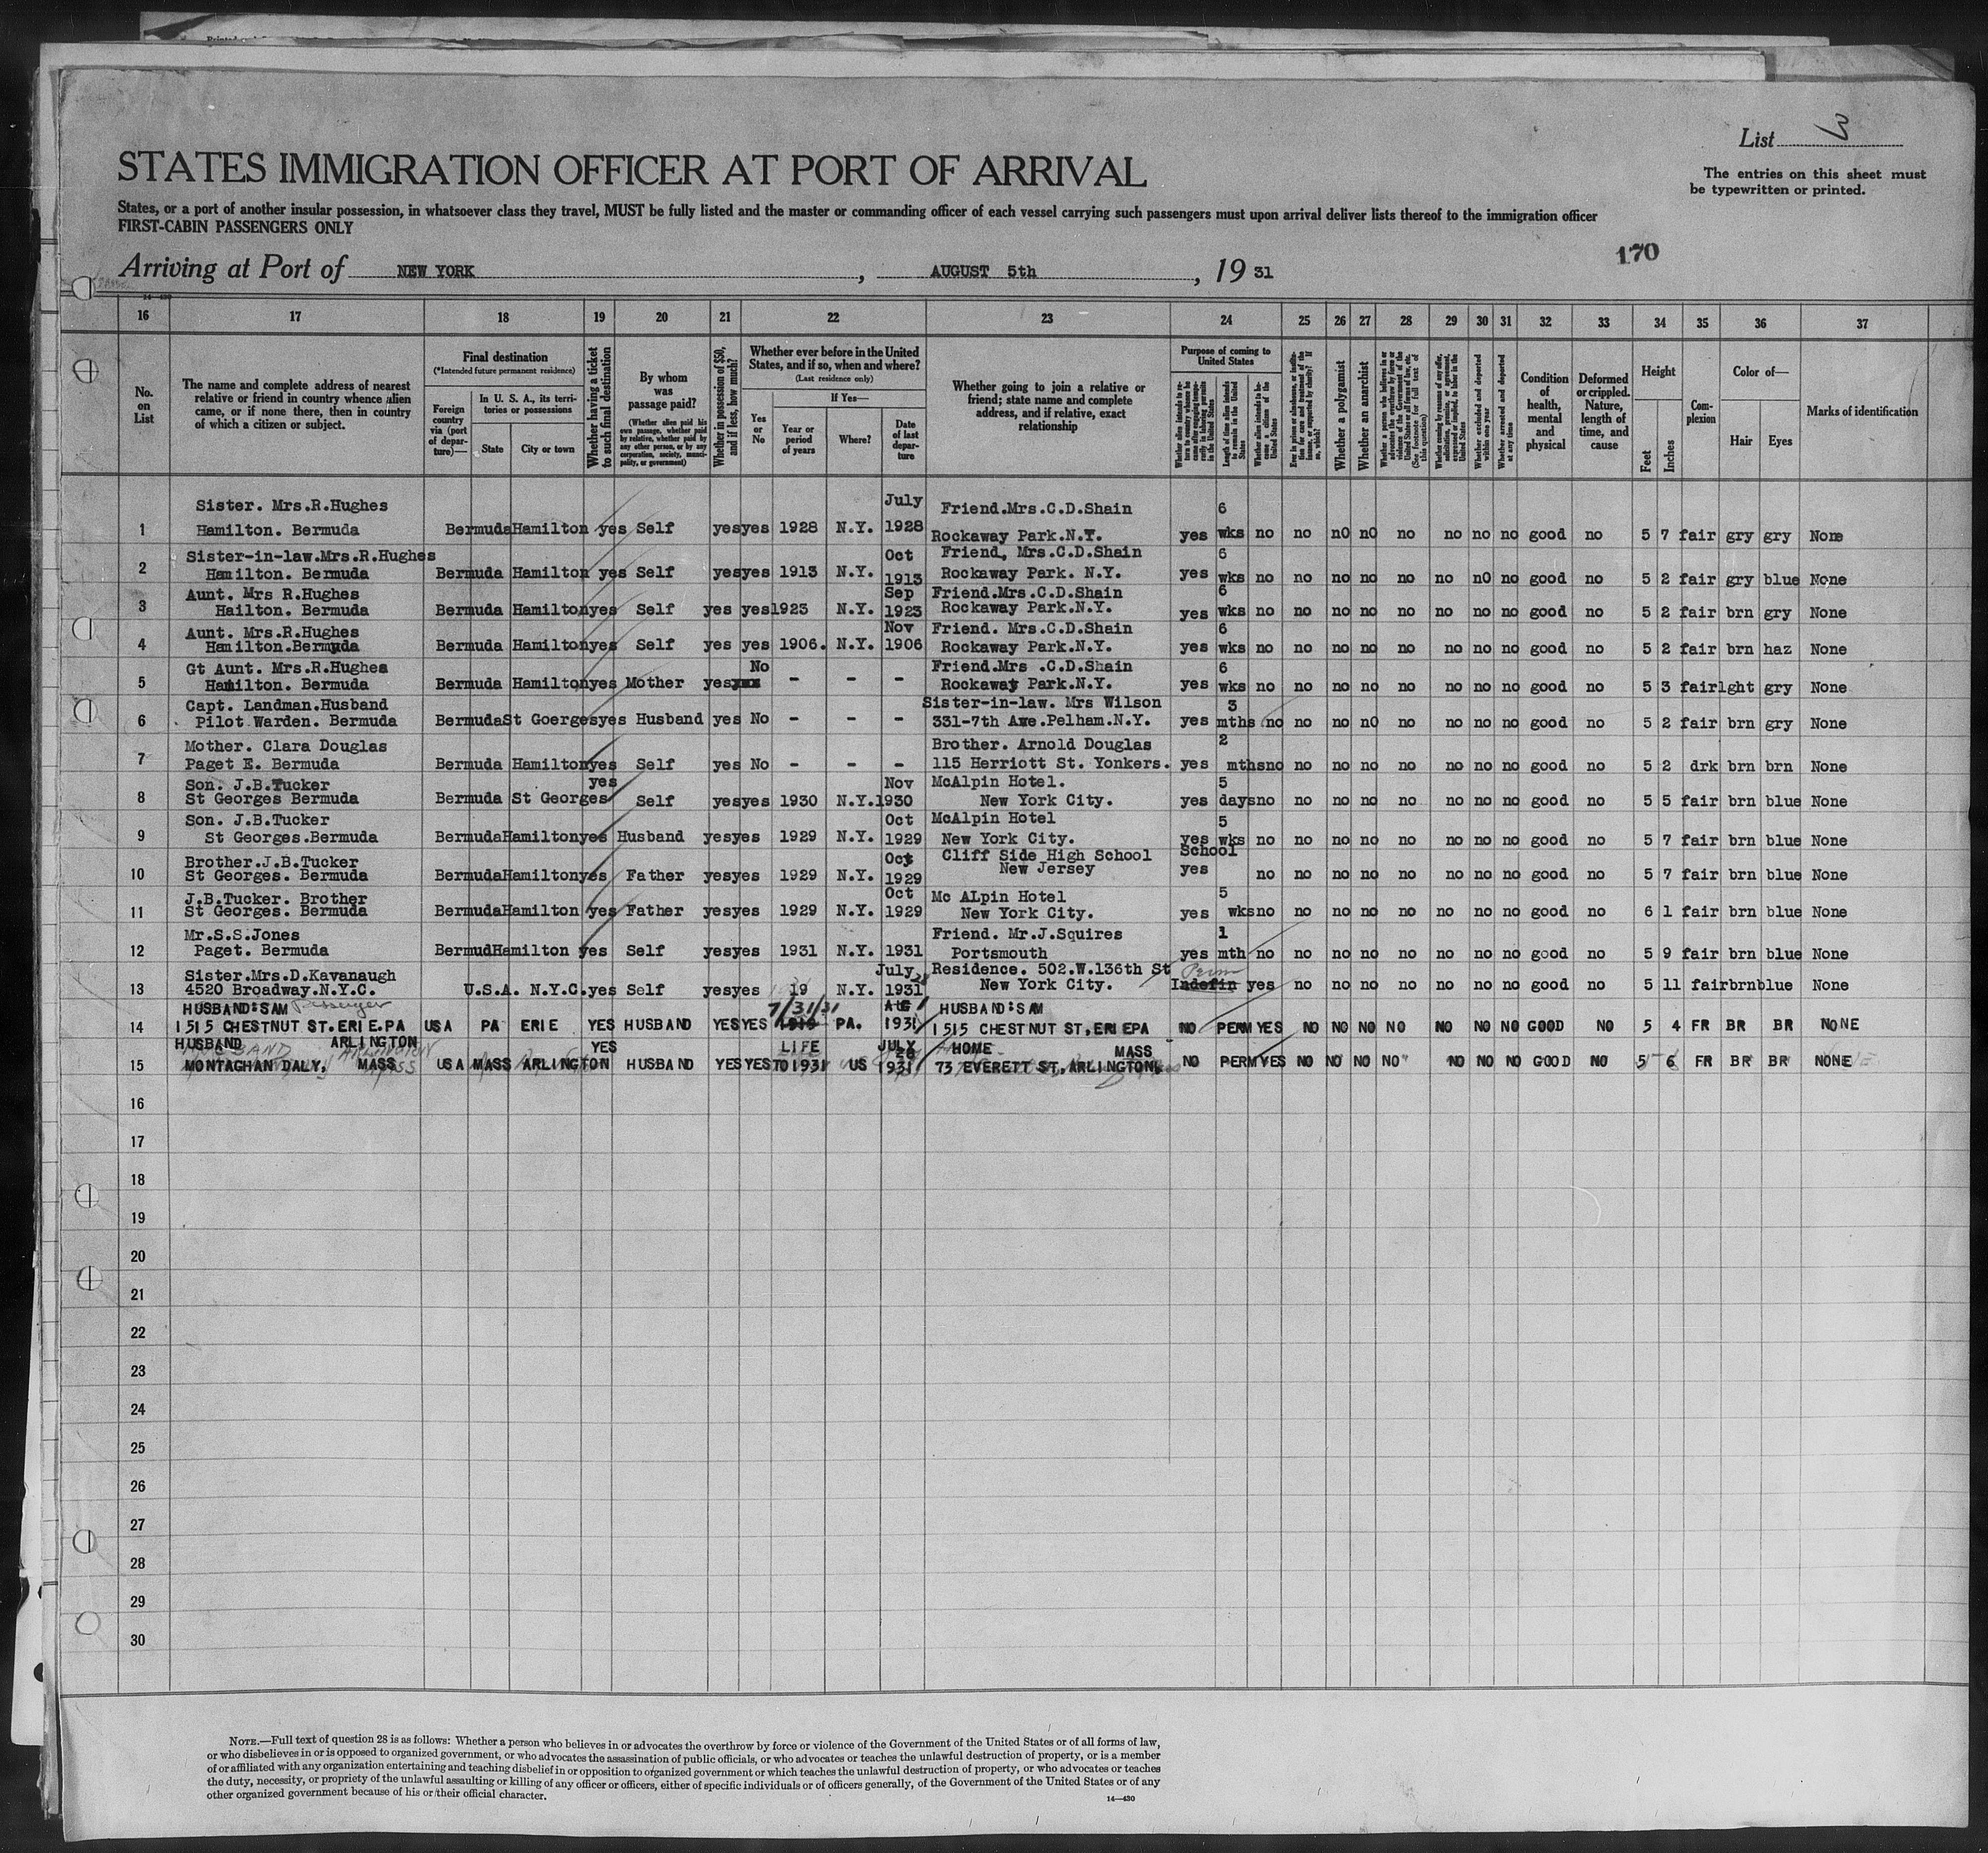 List 3
The entries on this sheet must
be typewritten or printed.
STATES IMMIGRATION OFFICER AT PORT OF ARRIVAL
States, or a port of another insular possession, in whatsoever class they travel, MUST be fully listed and the master or commanding officer of each vessel carrying such passengers must upon arrival deliver lists thereof to the immigration officer
FIRST-CABIN PASSENGERS ONLY
170
Arriving at Port of NEW YORK, AUGUST 5th, 19 31
14—430
16 17 18 19 20 21 22 23 24 25 26 27 28 29 30 31 32 33 34 35 36 37
No. on List
The name and complete address of nearest
relative or friend in country whence alien
came, or if none there, then in country
of which a citizen or subject.
Final destination
(*Intended future permanent residence)
Foreign country via (port of departure)—
In U. S. A., its territories or possessions
State
City or town
Whether having a ticket to such final destination
By whom was passage paid?
(Whether alien paid his own passage, whether paid by relative, whether paid by any other person, or by any corporation, society, municipality, or government)
Whether in possession of $50, and if less, how much?
Whether ever before in the United
States, and if so, when and where?
(Last residence only)
Yes or No
If Yes—
Year or period of years
Where?
Date of last departure
Whether going to join a relative or
friend; state name and complete
address, and if relative, exact
relationship
Purpose of coming to United States
Length of time alien intends to remain in the United States
Whether alien intends to become a citizen of the United States
Whether a polygamist
Whether an anarchist
Whether excluded and deported within one year
Whether arrested and deported at any time
Condition of health, mental and physical
Deformed or crippled. Nature, length of time, and cause
Height
Feet
Inches
Complexion
Color of—
Hair
Eyes
Marks of identification
Sister. Mrs.R.Hughes July Friend.Mrs.C.D.Shain 6
1 Hamilton. Bermuda Bermuda Hamilton yes Self yes yes 1928 N.Y. 1928 Rockaway Park.N.Y. yes wks no no nO nO no no no no good no 5 7 fair gry gry None
Sister-in-law.Mrs.R.Hughes Oct Friend, Mrs.C.D.Shain 6
2 Hamilton. Bermuda Bermuda Hamilton yes Self yes yes 1913 N.Y. 1913 Rockaway Park. N.Y. yes wks no no no no no no nO no good no 5 2 fair gry blue None
Aunt. Mrs R.Hughes Sep Friend.Mrs.C.D.Shain 6
3 Hailton. Bermuda Bermuda Hamilton yes Self yes yes 1923 N.Y. 1923 Rockaway Park.N.Y. yes wks no no no no no no no no good no 5 2 fair brn gry None
Aunt. Mrs.R.Hughes Nov Friend. Mrs.C.D.Shain 6
4 Hamilton.Bermuda Bermuda Hamilton yes Self yes yes 1906. N.Y. 1906 Rockaway Park.N.Y. yes wks no no no no no no no no good no 5 2 fair brn haz None
Gt Aunt. Mrs.R.Hughes No Friend.Mrs .C.D.Shain 6
5 Hamilton. Bermuda Bermuda Hamilton yes Mother yes - - - Rockaway Park.N.Y. yes wks no no no no no no no no good no 5 3 fair lght gry None
Capt. Landman.Husband Sister-in-law. Mrs Wilson 3
6 Pilot Warden. Bermuda Bermuda St Goerges yes Husband yes No - - - 331-7th Ave.Pelham.N.Y. yes mths no no no nO no no no no good no 5 2 fair brn gry None
Mother. Clara Douglas Brother. Arnold Douglas 2
7 Paget E. Bermuda Bermuda Hamilton yes Self yes No - - - 115 Herriott St. Yonkers. yes mths no no no no no no no no good no 5 2 drk brn brn None
Son. J.B.Tucker yes Nov McAlpin Hotel. 5
8 St Georges Bermuda Bermuda St Georges Self yes yes 1930 N.Y. 1930 New York City. yes days no no no no no no no no good no 5 5 fair brn blue None
Son. J.B.Tucker Oct McAlpin Hotel 5
9 St Georges.Bermuda Bermuda Hamilton yes Husband yes yes 1929 N.Y. 1929 New York City. yes wks no no no no no no no no good no 5 7 fair brn blue None
Brother.J.B.Tucker Oct Cliff Side High School School
10 St Georges. Bermuda Bermuda Hamilton yes Father yes yes 1929 N.Y. 1929 New Jersey yes no no no no no no no no good no 5 7 fair brn blue None
J.B.Tucker. Brother Oct Mc ALpin Hotel 5
11 St Georges. Bermuda Bermuda Hamilton yes Father yes yes 1929 N.Y. 1929 New York City. yes wks no no no no no no no no good no 6 1 fair brn blue None
Mr.S.S.Jones Friend. Mr.J.Squires 1
12 Paget. Bermuda Bermud Hamilton yes Self yes yes 1931 N.Y. 1931 Portsmouth yes mth no no no no no no no no good no 5 9 fair brn blue None
Sister.Mrs.D.Kavanaugh July 28 Residence. 502.W.136th St Perm
13 4520 Broadway.N.Y.C. U.S.A. N.Y.C. yes Self yes yes 19 N.Y. 1931 New York City. Indefin yes no no no no no no no good no 5 11 fair brn blue None
HUSBAND:SAM Passenger 7/31/31 AUG 1 HUSBAND:SAM
14 1515 CHESTNUT ST.ERIE.PA USA PA ERIE YES HUSBAND YES YES PA. 1931 1515 CHESTNUT ST,ERIE PA NO PERM YES NO NO NO NO NO NO NO GOOD NO 5 4 FR BR BR NONE
HUSBAND ARLINGTON YES LIFE JULY 28 HOME MASS
15 MONTAGHAN DALY, MASS USA MASS ARLINGTON HUSBAND YES YES TO 1931 US 1931 73 EVERETT ST,ARLINGTON, NO PERM YES NO NO NO NO NO NO NO GOOD NO 5 6 FR BR BR NONE
16
17
18
19
20
21
22
23
24
25
26
27
28
29
30
NOTE.—Full text of question 28 is as follows: Whether a person who believes in or advocates the overthrow by force or violence of the Government of the United States or of all forms of law,
or who disbelieves in or is opposed to organized government, or who advocates the assassination of public officials, or who advocates or teaches the unlawful destruction of property, or is a member
of or affiliated with any organization entertaining and teaching disbelief in or opposition to organized government or which teaches the unlawful destruction of property, or who advocates or teaches
the duty, necessity, or propriety of the unlawful assaulting or killing of any officer or officers, either of specific individuals or of officers generally, of the Government of the United States or of any
other organized government because of his or their official character.
14—430